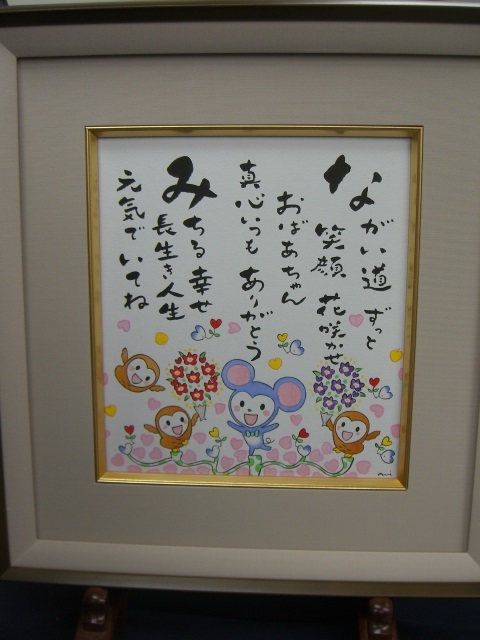 ながい道 ずっと
笑顔 花咲かせ
おばあちゃん
真心いつも ありがとう
みちる幸せ
長生き人生
元気で いてね